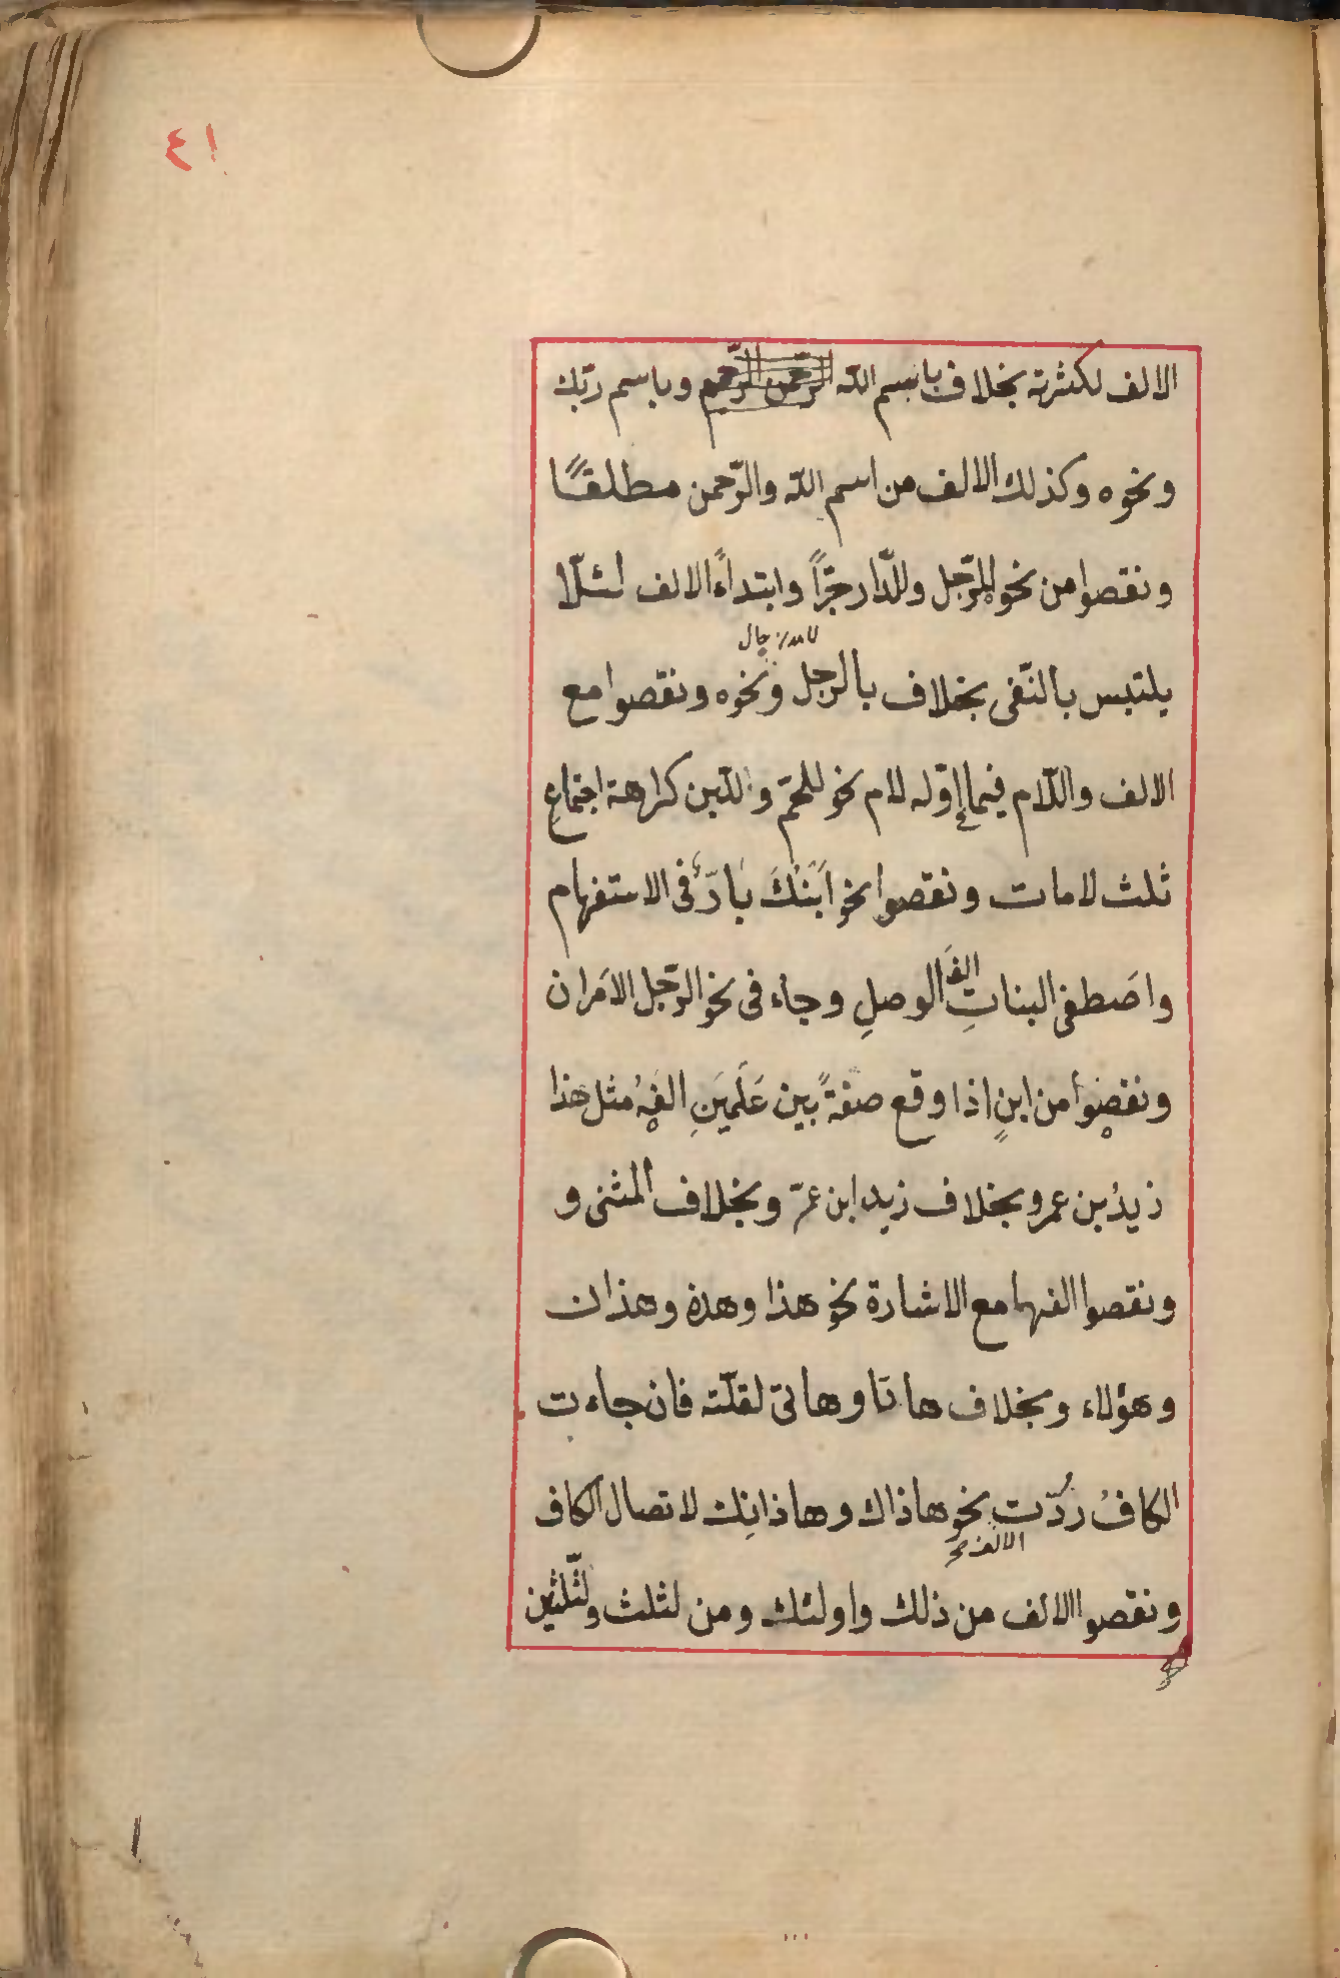 ٤١
الالف لكثرته بخلاف باسم اللّه الرّحمن الرّحيم وباسم ربّك
ونحوه وكذلك الالف من اسم اللّه والرّحمن مطلقًا
ونقصوا من نحو للرّجل وللدّار جرّاً وابتداءً الالف لئلّا
يلتبس بالنّفى بخلاف بالرجل ونحوه ونقصوا مع
الالف واللّام فيما اوّله لام نحو للحّم وللّبن كراهة اجتماعِ
ثلث لامات ونقصوا نحو اَبَنْكَ بَارّ فى الاستفهام
واَصَطفى البناتِ الفَ الوصلِ وجاء فى نحو الرّجل الاَمران
ونقصوا من ابنٍ اذا وقع صفةً بين عَلَمَينِ الفَهُ مثل هذا
زيدُ بن عمرو بخلاف زيد ابن عمرّ وبخلاف المثنى و
ونقصوا الفها مع الاشارة نحو هذا وهذه وهذان
وهؤلاء وبخلاف هاتا وهاتى لقلّته فان جاءت
الكافُ رُدّت نحو هاذاك وهاذانِك لاتصال الكاف
ونقصوا الالف من ذلك واولئك ومن لثلث ولثّلثين